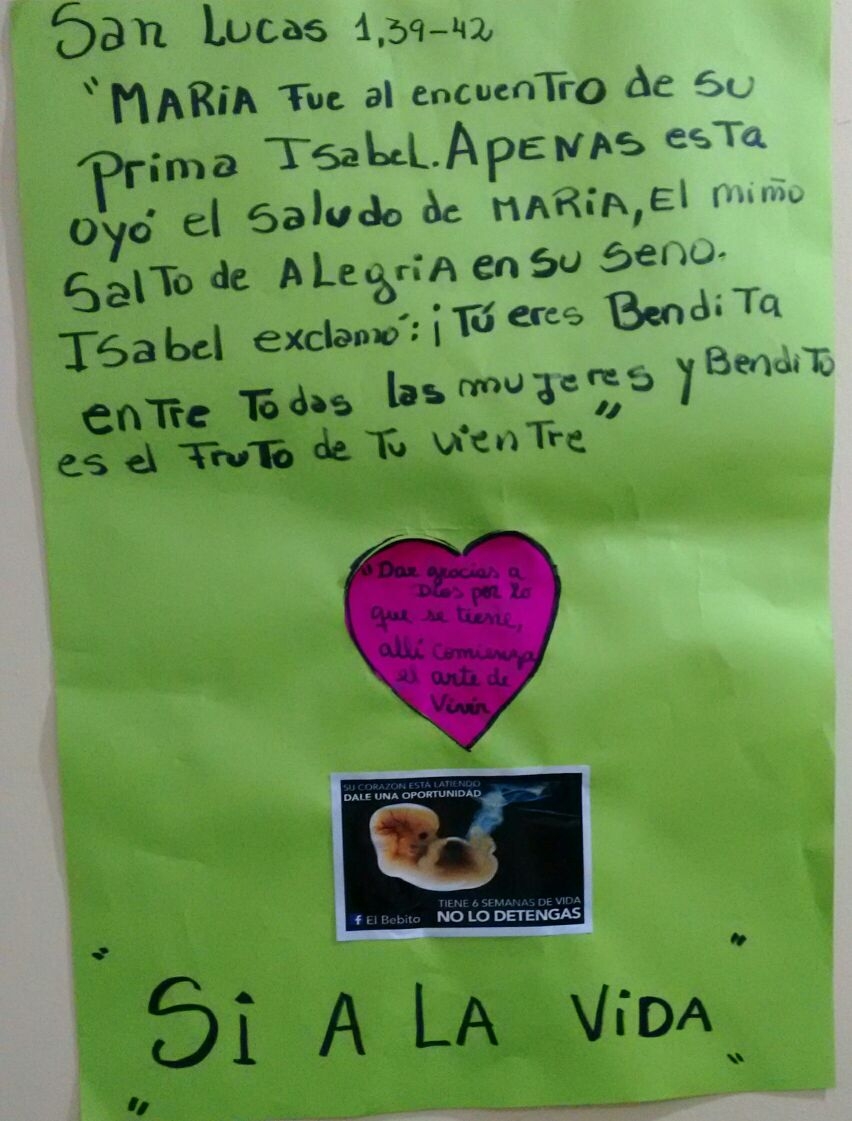 San Lucas 1,39-42
"MARIA Fue al encuenTro de su
prima Isabel. APENAS esTa
oyó el saludo de MARIA, El mimõ
SalTo de ALegriA en su seno.
ISabel exclamó: ¡Tú eres BendiTa
enTre Todas las mujeres y BendiTo
es el FruTo de Tu vienTre"
"Dar gracias a
Dios por lo
que se tiene,
allí comienza
el arte de
Vivir
SU CORAZON ESTÁ LATIENDO
DALE UNA OPORTUNIDAD
TIENE 6 SEMANAS DE VIDA
f El Bebito NO LO DETENGAS
"Si A LA ViDA"